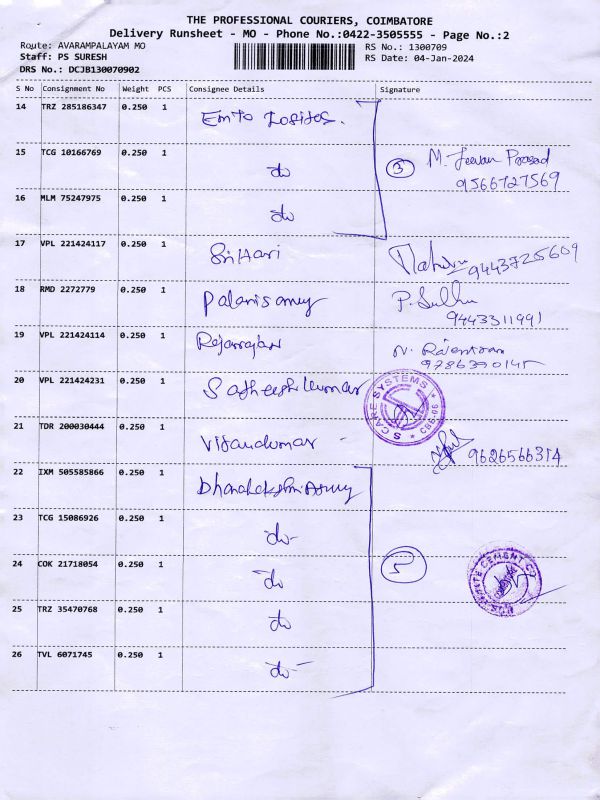 THE PROFESSIONAL COURIERS, COIMBATORE
Delivery Runsheet - MO - Phone No.:0422-3505555 - Page No.:2
Route: AVARAMPALAYAM MO RS No.: 1300709
Staff: PS SURESH RS Date: 04-Jan-2024
DRS No.: DCJB130070902
S No Consignment No Weight PCS Consignee Details Signature
14 TRZ 285186347 0.250 1
15 TCG 10166769 0.250 1 do 3 M. Jeevan Prasad
9566727569
16 MLM 75247975 0.250 1 do
17 VPL 221424117 0.250 1 SriHari 9443725609
18 RMD 2272779 0.250 1 Palanisamy P.
9443311991
19 VPL 221424114 0.250 1 N.
9786390145
20 VPL 221424231 0.250 1 Satheeshkumar S CARE SYSTEMS CBE-06
21 TDR 200030444 0.250 1 9626566314
22 IXM 505585866 0.250 1
23 TCG 15086926 0.250 1 do
24 COK 21718054 0.250 1 do 5 CEMENT
25 TRZ 35470768 0.250 1 do
26 TVL 6071745 0.250 1 do